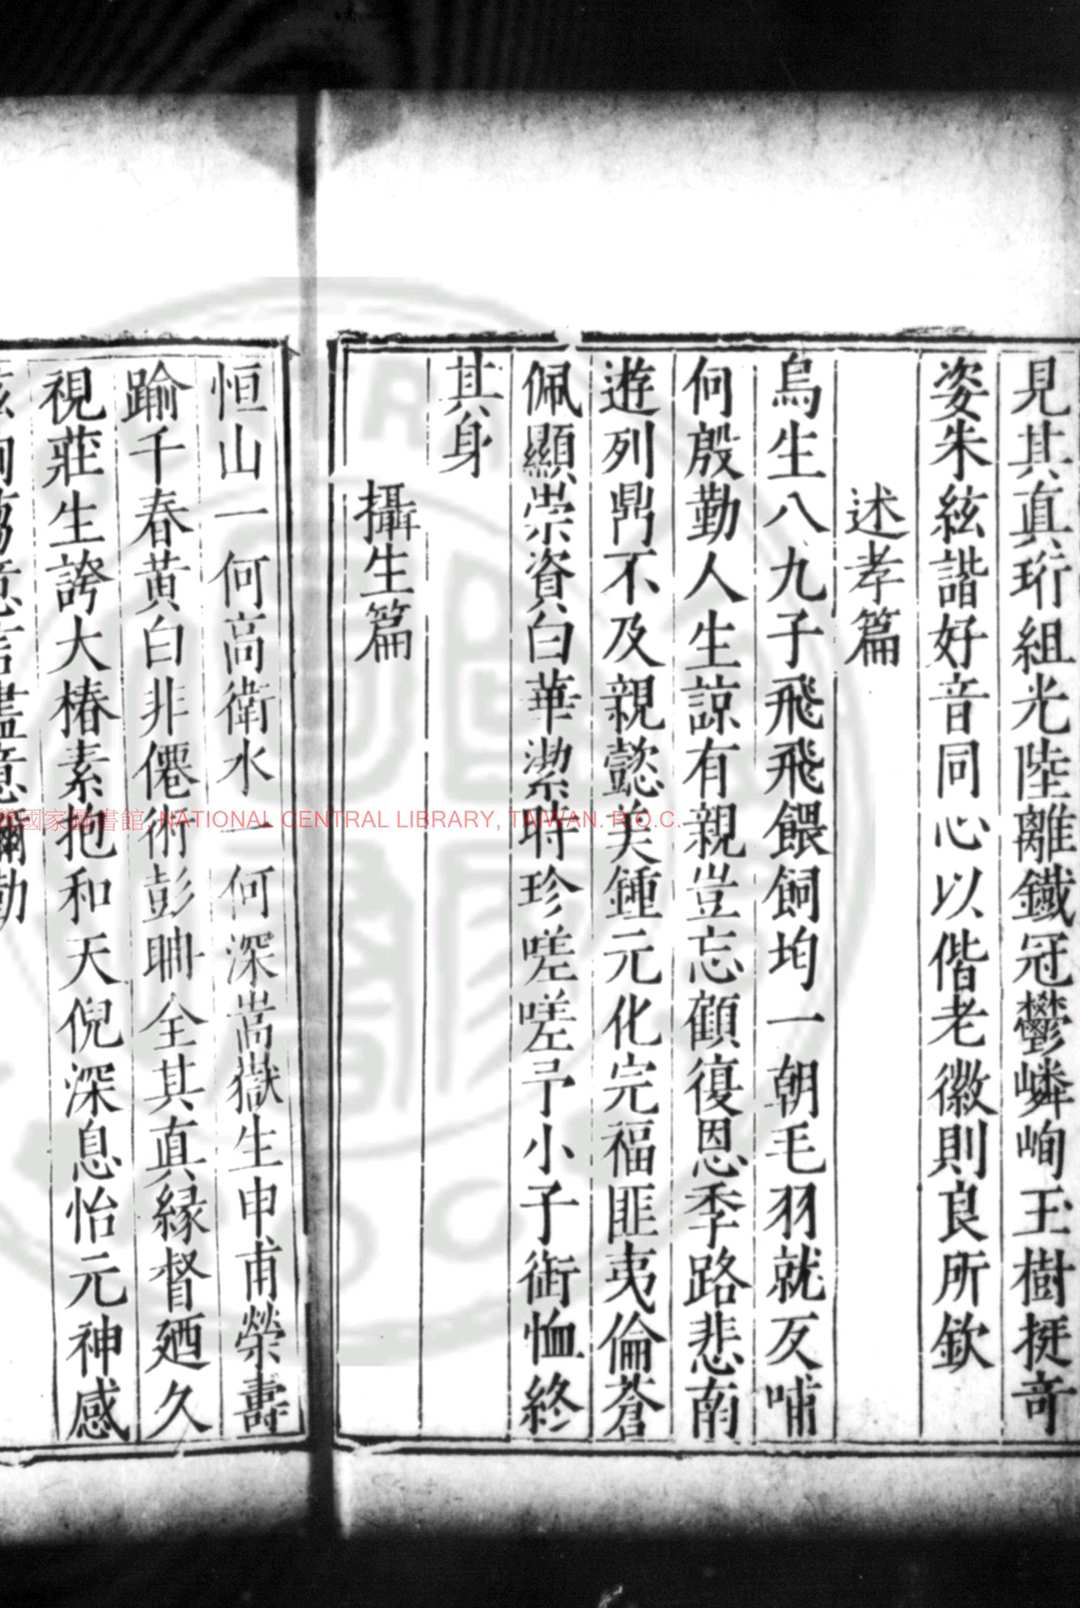 見其真珩組光陸離鐵冠鬱嶙峋玉樹挺奇
姿朱絃諧好音同心以偕老徽則良所欽
述孝篇
烏生八九子飛飛餵飼均一朝毛羽就反哺
何殷勤人生諒有親豈忘顧復恩季路悲南
遊列鼎不及親懿美鍾元化完福匪夷倫蒼
佩顯榮資白華潔時珍嗟嗟予小子銜恤終
其身
攝生篇
恒山一何高衛水一何深嵩嶽生申甫榮壽
踰千春黄白非僊術彭聃全其真緣督廼久
視莊生誇大椿素抱和天倪深息怡元神感
國家圖書館, NATIONAL CENTRAL LIBRARY, TAIWAN. R.O.C.